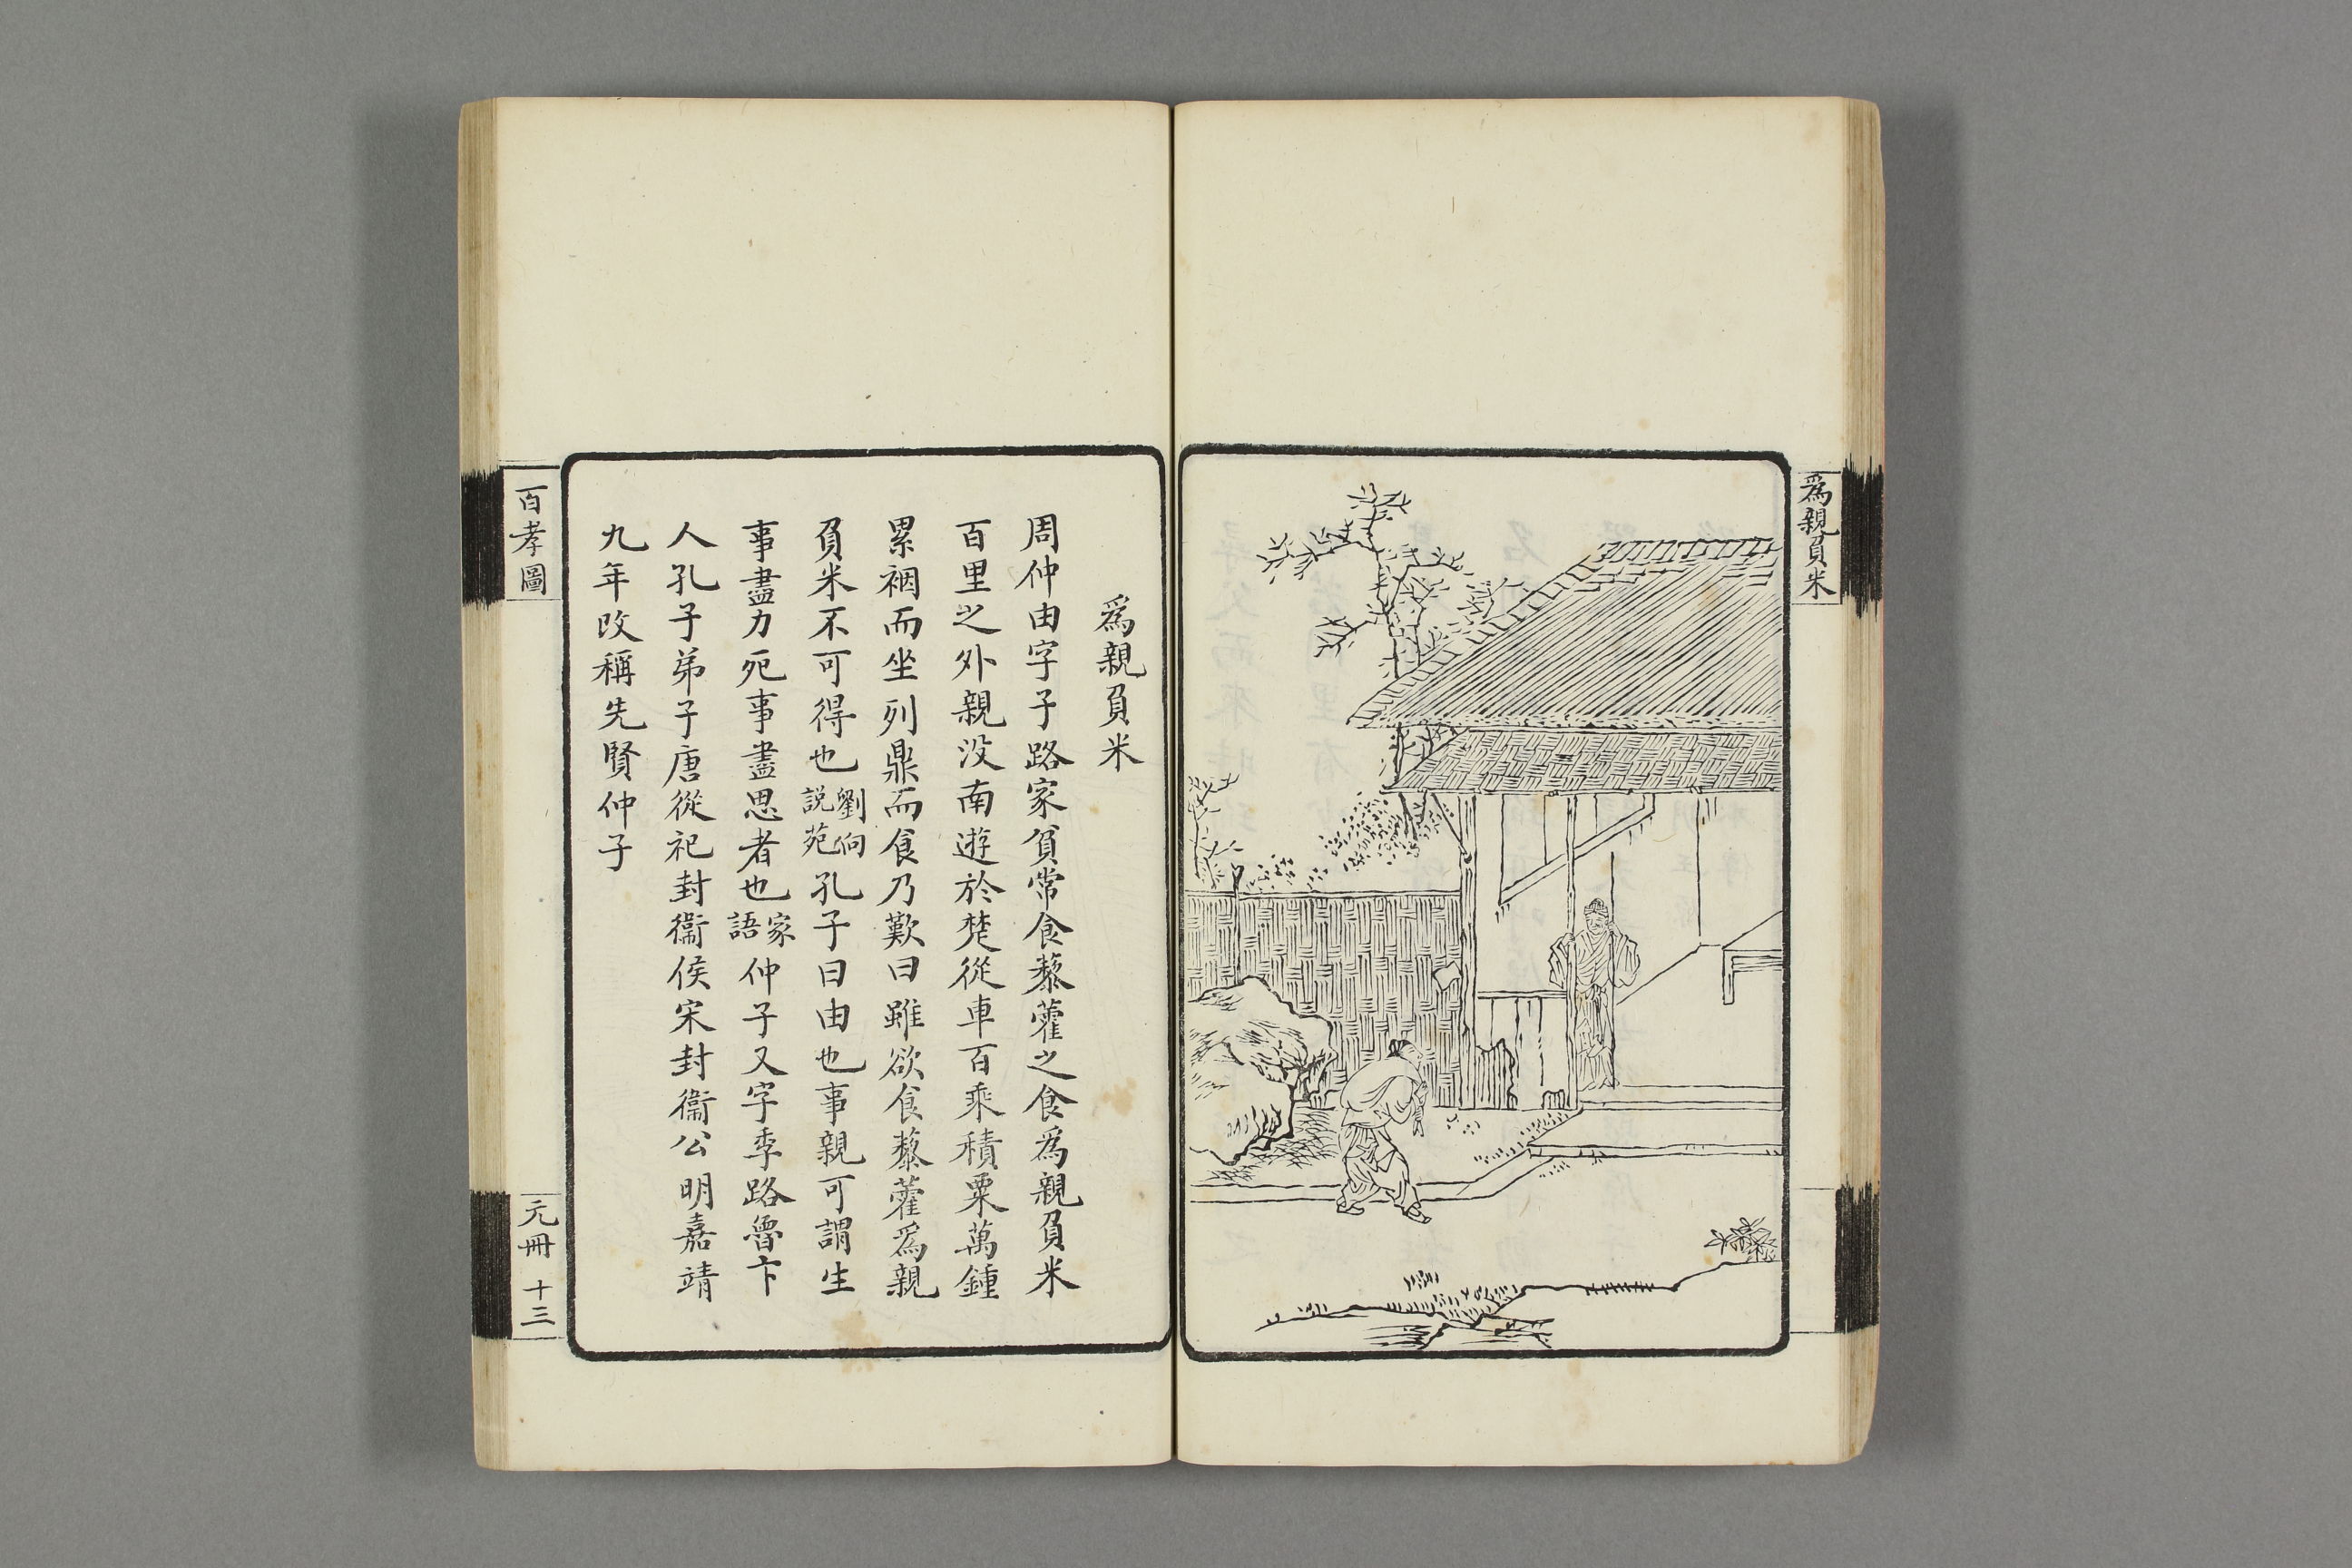 為親負米
為親負米
周仲由字子路家貧常食藜藿之食為親負米
百里之外親沒南遊於楚從車百乘積粟萬鍾
累裀而坐列鼎而食乃歎曰雖欲食藜藿為親
負米不可得也劉向說苑孔子曰由也事親可謂生
事盡力死事盡思者也家語仲子又字季路魯卞
人孔子弟子唐從祀封衞侯宋封衞公明嘉靖
九年改稱先賢仲子
百孝圖
元冊 十三